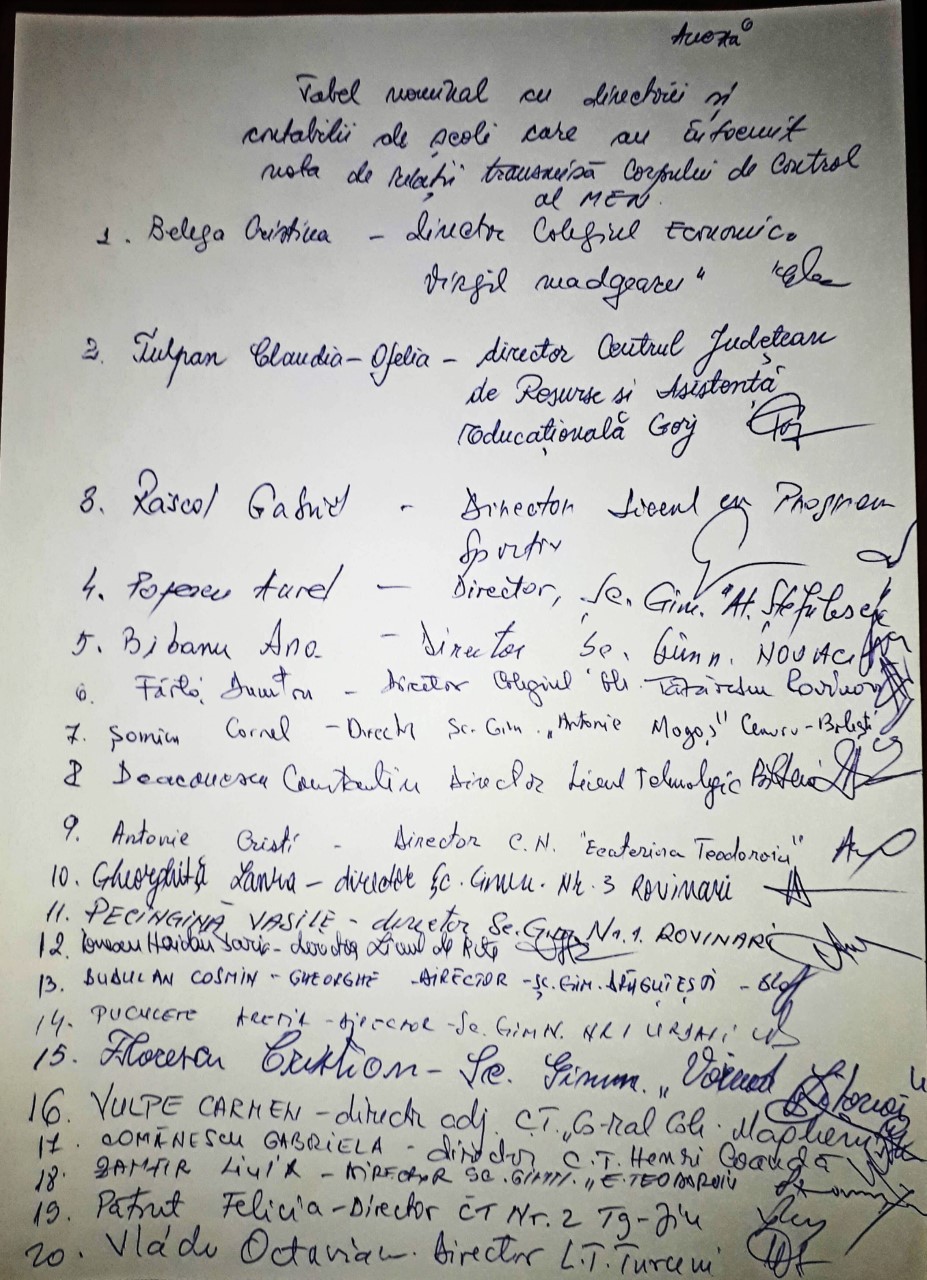 Anexa 6
Tabel nominal cu directorii și
contabilii de școli care au întocmit
nota de relații transmisă Corpului de Control
al MEN.
1. Belega Cristina - director Colegiul Economic
Virgil Madgearu"
2. Tulpan Claudia-Ofelia - director Centrul Județean
de Resurse si Asistență
Educațională Gorj
3. Rascol Gabriel - Director Liceul cu Program
Sportiv
4. Popescu Aurel - Director, Șc. Gim. "Al. Ștefulescu
5. Bibanu Ana - Director Sc. Gimn. NOVACI
6. Dumitru - Director Colegiul Gh. Tătărescu Rovinari
7. Șomicu Cornel - Direct Sc. Gim. „Antonie Mogoș" Ceauru-Bălești
8 Deaconescu Constantin Director Liceul Tehnologic Bîlteni
9. Antonie Cristi - Director C.N. "Ecaterina Teodoroiu"
10. Gheorghiță Laura - director Șc. Gimn. Nr. 3 ROVINARI
11. PECINGINĂ VASILE - director Sc. Gim. Nr. 1. ROVINARI
12. Ionescu Haidau Maria - director Liceul de Arte
13. BUDULAN COSMIN - GHEORGHE - DIRECTOR - ȘC. GIM. DRĂGUȚEȘTI
14. - DIRECTOR - Sc. GIMN. NR 1 URSAȚI
15. Florescu Cristian - Sc. Gimn. „Voievod
16. VULPE CARMEN - directr adj. C.T. „G-ral Gh. Magheru
17. COMĂNESCU GABRIELA - director C.T. Henri Coandă
18. ZAMFIR LIVIA - DIRECTOR SC. GIMN. „E. TEODOROIU
19. Pătruț Felicia - Director CT Nr. 2 Tg-Jiu
20. Vlădu Octavian - Director L.T. Turceni